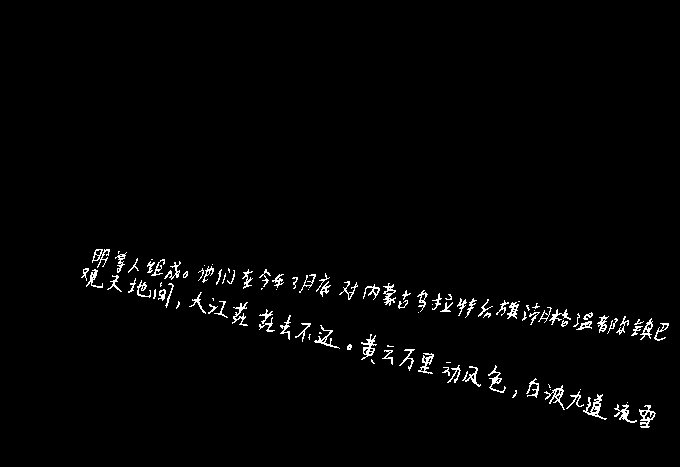 明等人组成。他们在今年3月底对内蒙古乌拉特后旗潮格温都尔镇巴
观天地间，大江茫茫去不还。黄云万里动风色，白波九道流雪